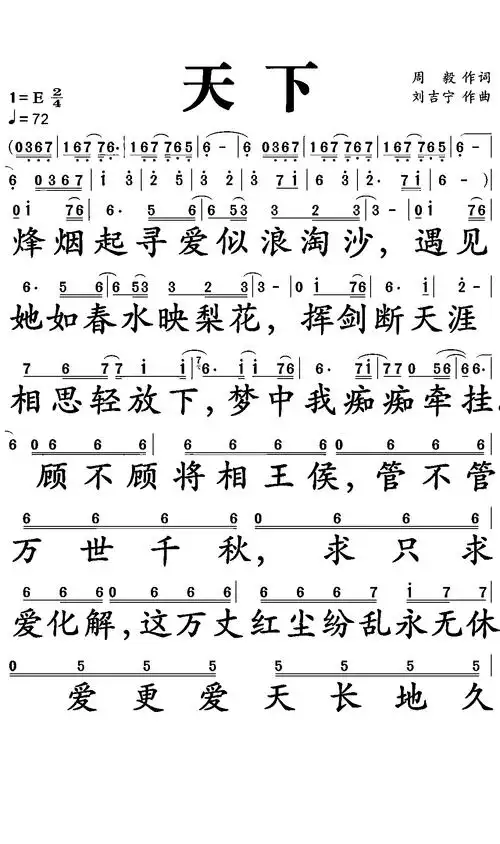 天下
周毅 作词
1=E 2/4
刘吉宁 作曲
♩=72
(0367|167 76·|167 765|6 -|6 0367|167 765|167 765|6 -|
6 0367|i 3|2 5|3 7i|6 3|2· 7i|6 -)|
0i 76|6· 56|6 53|3 23|3 -|0i 76|
烽烟起寻爱似浪淘沙，遇见
6· 56|6 53|3 23|3 -|0i 76|6· i|2 -|
她如春水映梨花，挥剑断天涯
7 67|7i i|76· i|6 -|6· 7i|770 56|66·|
相思轻放下，梦中我痴痴牵挂。
6 0 6 6 6|6 6 6 6|0 6 6 6|
顾不顾将相王侯，管不管
6 6 6 6|0 6 6 6|
万世千秋，求只求
6 6 6 0|6 6 6 6|6 6 6 7|i 7 7|
爱化解，这万丈红尘纷乱永无休
0 5 5 5|5 5 5 5|
爱更爱天长地久